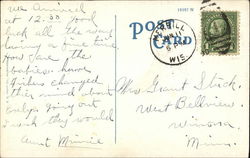 We arrived
at 12.30 good
luck all the way
having a fine time
how are the
babies. have
Gishes changed
their mind about
only going out
wish they would
Aunt Minnie
POST
CARD
MERRILL
WIS.
Mrs Grant Stock,
West Bellview,
Winona,
Minn.